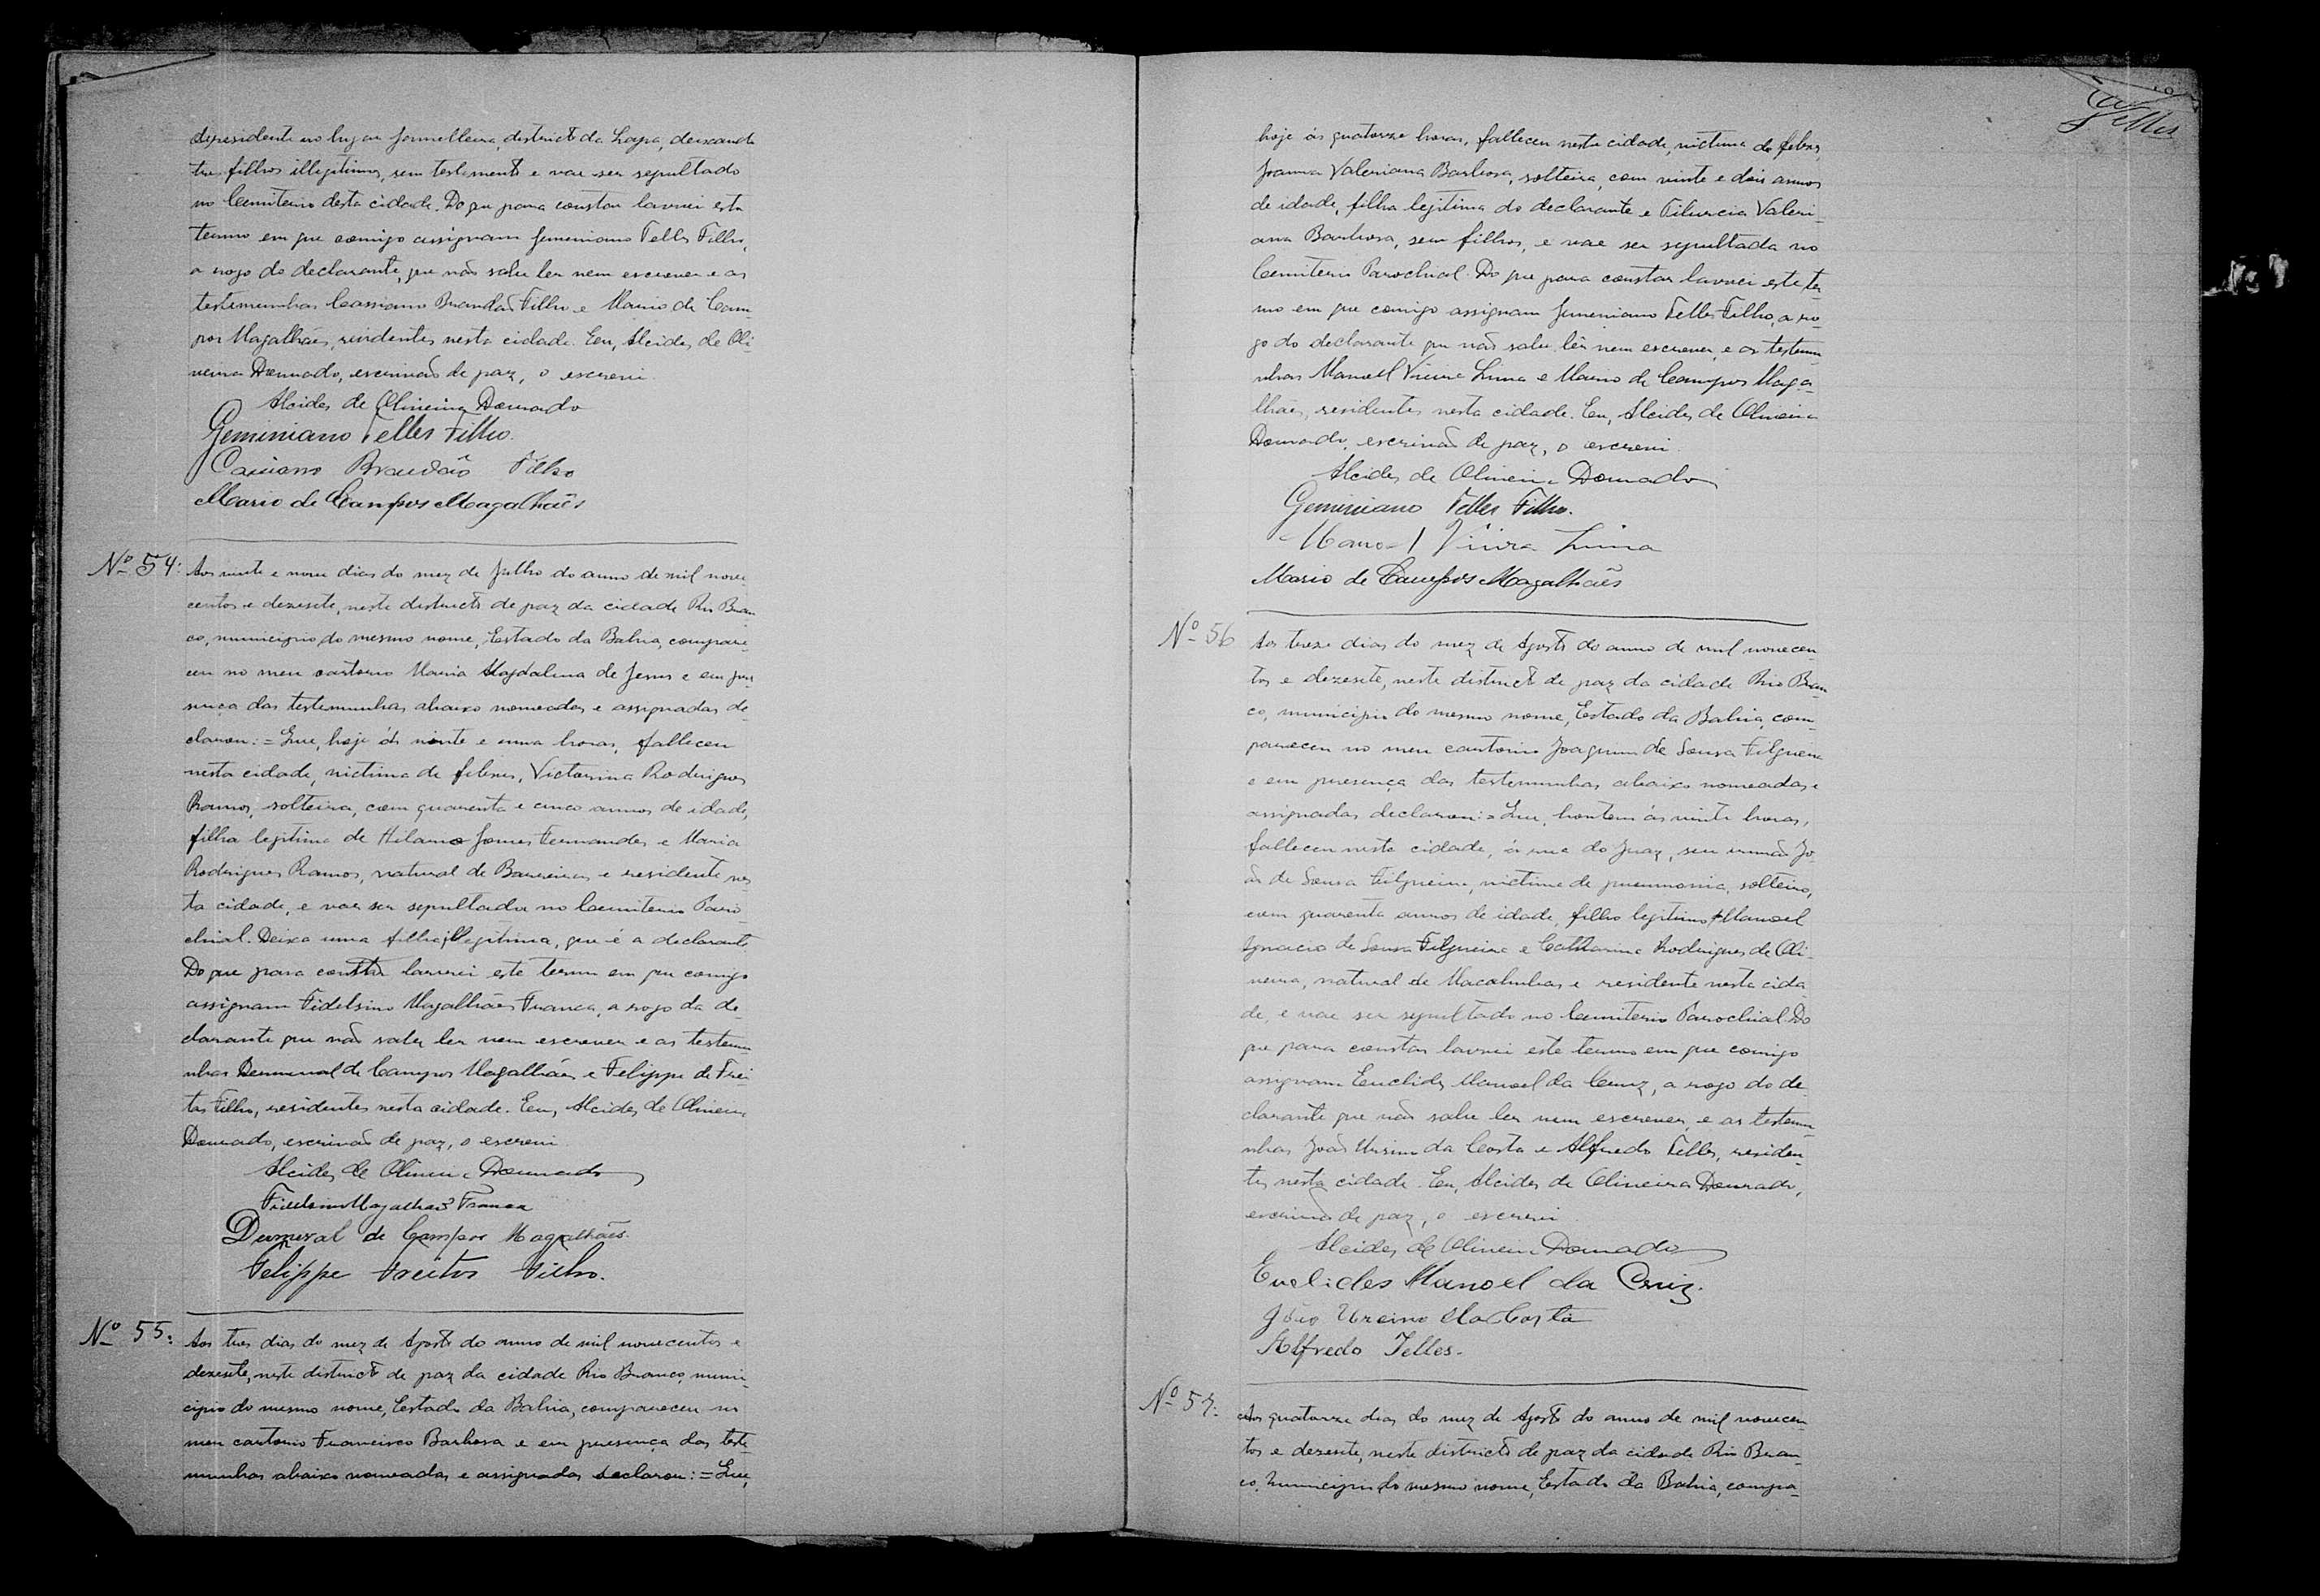 residente no lugar Gamelleira, districto da Lapa, deixando
tres filhos illegitimos, sem testamento e vae ser sepultado
no Cemiterio desta cidade. Do que para constar lavrei este
termo em que comigo assignam Geminiano Telles Filho,
a rogo do declarante, que não sabe ler nem escrever e as
testemunhas Cassiano Brandão Filho e Mario de Cam-
pos Magalhães, residentes nesta cidade. Eu, Alcides de Oli-
veira Dourado, escrivão de paz, o escrevi.
Alcides de Oliveira Dourado
Geminiano Telles Filho.
Cassiano Brandão Filho
Mario de Campos Magalhães
Nº 54: Aos vinte e nove dias do mez de Julho do anno de mil nove-
centos e dezesete, neste districto de paz da cidade Rio Bran-
co, municipio do mesmo nome, Estado da Bahia, compare-
ceu no meu cartorio Maria Magdalena de Jesus e em pre-
sença das testemunhas abaixo nomeadas e assignadas de-
clarou: = Que, hoje ás vinte e uma horas, falleceu
nesta cidade, victima de febres, Victorina Rodrigues
Ramos, solteira, com quarenta e cinco annos de idade,
filha legitima de Hilario Gomes Fernandes e Maria
Rodrigues Ramos, natural de Barreiras e residente nes-
ta cidade, e vae ser sepultada no Cemiterio Paro-
chial. Deixa uma filha illegitima, que é a declarante.
Do que para constar lavrei este termo em que comigo
assignam Fidelsino Magalhães Franca, a rogo da de-
clarante que não sabe ler nem escrever e as testemu-
nhas Durmeval de Campos Magalhães e Felippe de Frei-
tas Filho, residentes nesta cidade. Eu, Alcides de Oliveira
Dourado, escrivão de paz, o escrevi.
Alcides de Oliveira Dourado
Fidelsino Magalhães Franca
Durmeval de Campos Magalhães.
Felippe Freitas Filho.
Nº 55: Aos tres dias do mez de Agosto do anno de mil novecentos e
dezesete, neste districto de paz da cidade Rio Branco, muni-
cipio do mesmo nome, Estado da Bahia, compareceu no
meu cartorio Francisco Barbosa e em presença das teste-
munhas abaixo nomeadas e assignadas declarou: = Que,
Telles
hoje ás quatorze horas, falleceu nesta cidade, victima de febres,
Joanna Valeriana Barbosa, solteira, com vinte e dois annos
de idade, filha legitima do declarante e Valeri-
ana Barbosa, sem filhos, e vae ser sepultada no
Cemiterio Parochial. Do que para constar lavrei este ter-
mo em que comigo assignam Geminiano Telles Filho, a ro-
go do declarante que não sabe lêr nem escrever, e as testemu-
nhas Manoel Vieira Lima e Mario de Campos Maga-
lhães, residentes nesta cidade. Eu, Alcides de Oliveira
Dourado, escrivão de paz, o escrevi.
Alcides de Oliveira Dourado
Geminiano Telles Filho.
Manoel Vieira Lima
Mario de Campos Magalhães
Nº 56 Aos treze dias do mez de Agosto do anno de mil novecen-
tos e dezesete, neste districto de paz da cidade Rio Bran-
co, municipio do mesmo nome, Estado da Bahia, com-
pareceu no meu cartorio Joaquim de Sousa Filgueira
e em presença das testemunhas abaixo nomeadas e
assignadas declarou: = Que, hontem ás vinte horas,
falleceu nesta cidade, á rua do Juaz, seu irmão Jo-
ão de Sousa Filgueira, victima de pneumonia, solteiro,
com quarenta annos de idade, filho legitimo Manoel
Ignacio de Sousa Filgueira e Catharina Rodrigues de Oli-
veira, natural de Macahubas e residente nesta cida-
de, e vae ser sepultado no Cemiterio Parochial. Do
que para constar lavrei este termo em que comigo
assignam Euclides Manoel da Cruz, a rogo do de-
clarante que não sabe ler nem escrever, e as testemu-
nhas João Ursino da Costa e Alfredo Telles, residen-
tes nesta cidade. Eu, Alcides de Oliveira Dourado,
escrivão de paz, o escrevi.
Alcides de Oliveira Dourado
Euclides Manoel da Cruz.
João Urcino da Costa
Alfredo Telles.
Nº 57: Aos quatorze dias do mez de Agosto do anno de mil novecen-
tos e dezesete, neste districto de paz da cidade Rio Bran-
co, municipio do mesmo nome, Estado da Bahia, compa-